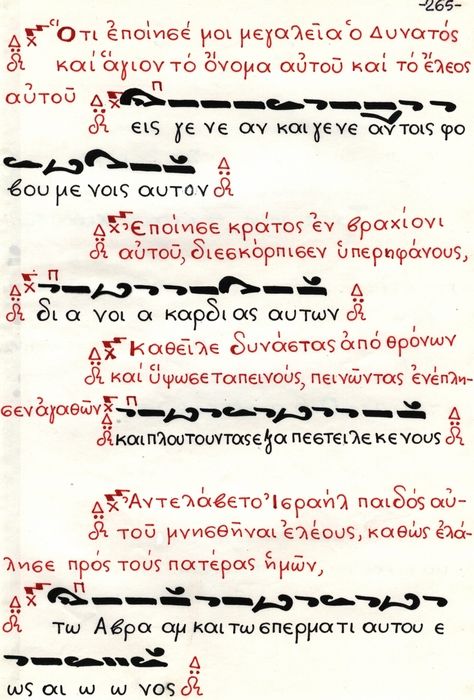 -265-
Ὅτι ἐποίησέ μοι μεγαλεῖα ὁ Δυνατός
καὶ ἅγιον τό ὄνομα αὐτοῦ καί τό ἔλεος
αὐτοῦ
εις γε νε αν και γενε αν τοις φο
βου με νοις αυτον
Ἐποίησε κράτος ἐν βραχίονι
αὐτοῦ, διεσκόρπισεν ὑπερηφάνους,
δι α νοι α καρδι ας αυτων
Καθεῖλε δυνάστας ἀπό θρόνων
καί ὕψωσε ταπεινούς, πεινῶντας ἐνέπλη-
σεν ἀγαθῶν
και πλουτουντας εξα πεστειλε κενους
Ἀντελάβετο Ἰσραήλ παιδός αὐ-
τοῦ μνησθῆναι ἐλέους, καθώς ἐλά-
λησε πρός τούς πατέρας ἡμῶν,
τω Αβρα αμ και τω σπερματι αυτου ε
ως αι ω ω νος